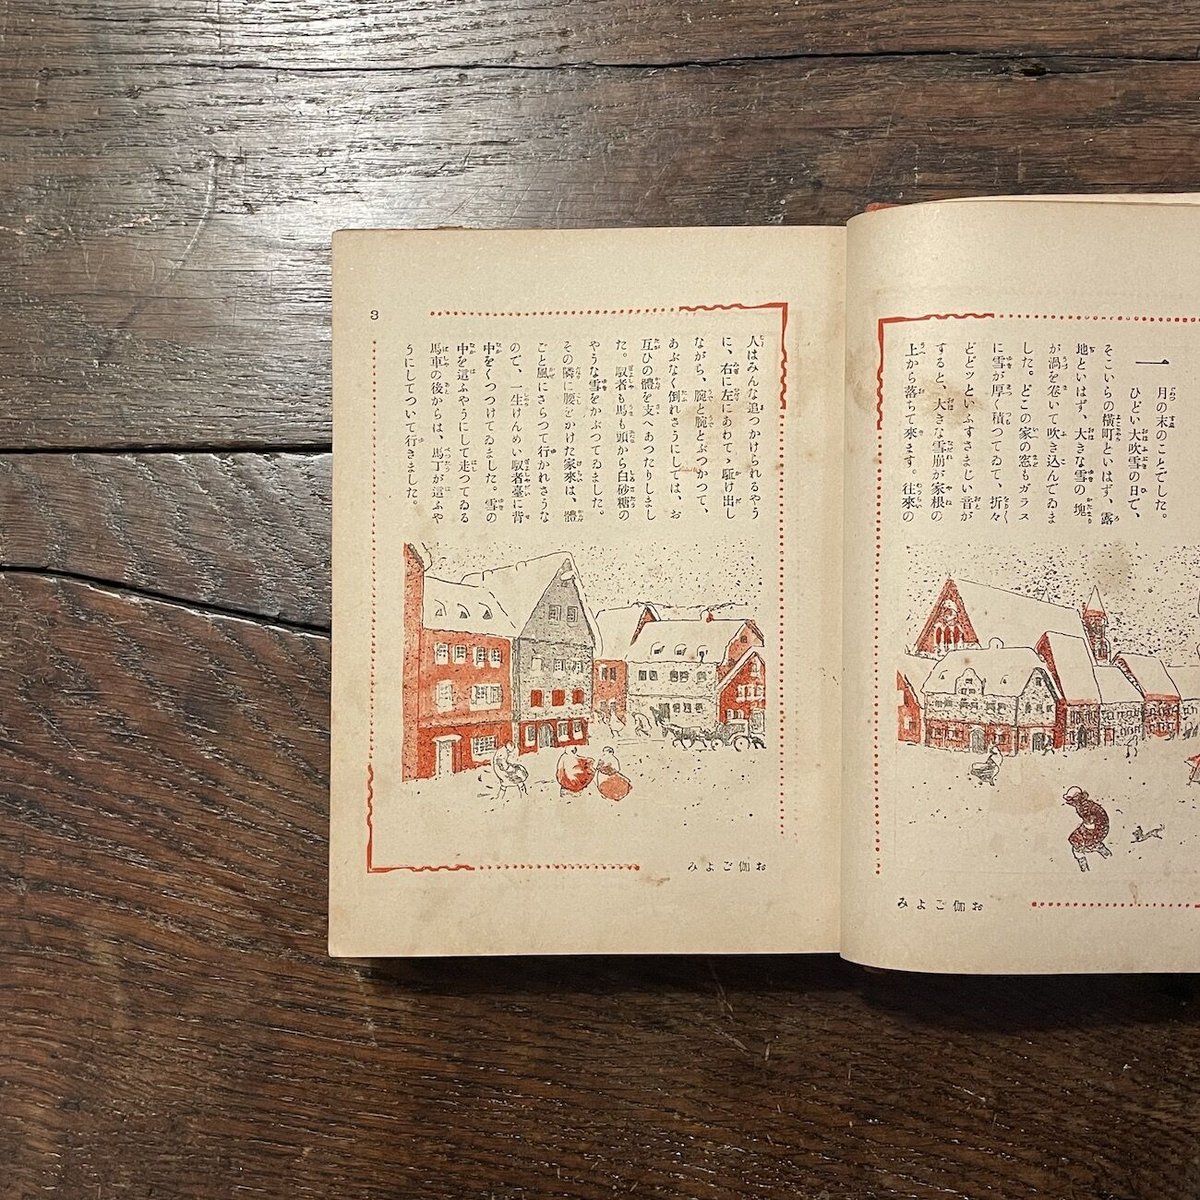 一月の末のことでした。
ひどい大吹雪の日で、
そこいらの横町といはず、露
地といはず、大きな雪の塊
が渦を巻いて吹き込んでゐま
した。どこの家の窓もガラス
に雪が厚く積つてゐて、折々
どどッといふすさまじい音が
すると、大きな雪崩が家根の
上から落ちて來ます。往來の
お伽ごよみ
人はみんな追つかけられるやう
に、右に左にあわてゝ駈け出し
ながら、腕と腕とぶつかつて、
あぶなく倒れさうにしては、お
互ひの體を支へあつたりしまし
た。馭者も馬も頭から白砂糖の
やうな雪をかぶつてゐました。
その隣に腰をかけた家來は、體
ごと風にさらつて行かれさうな
ので、一生けんめい馭者臺に背
中をくつつけてゐました。雪の
中を這ふやうにして走つてゐる
馬車の後からは、馬丁が這ふや
うにしてついて行きました。
お伽ごよみ
3